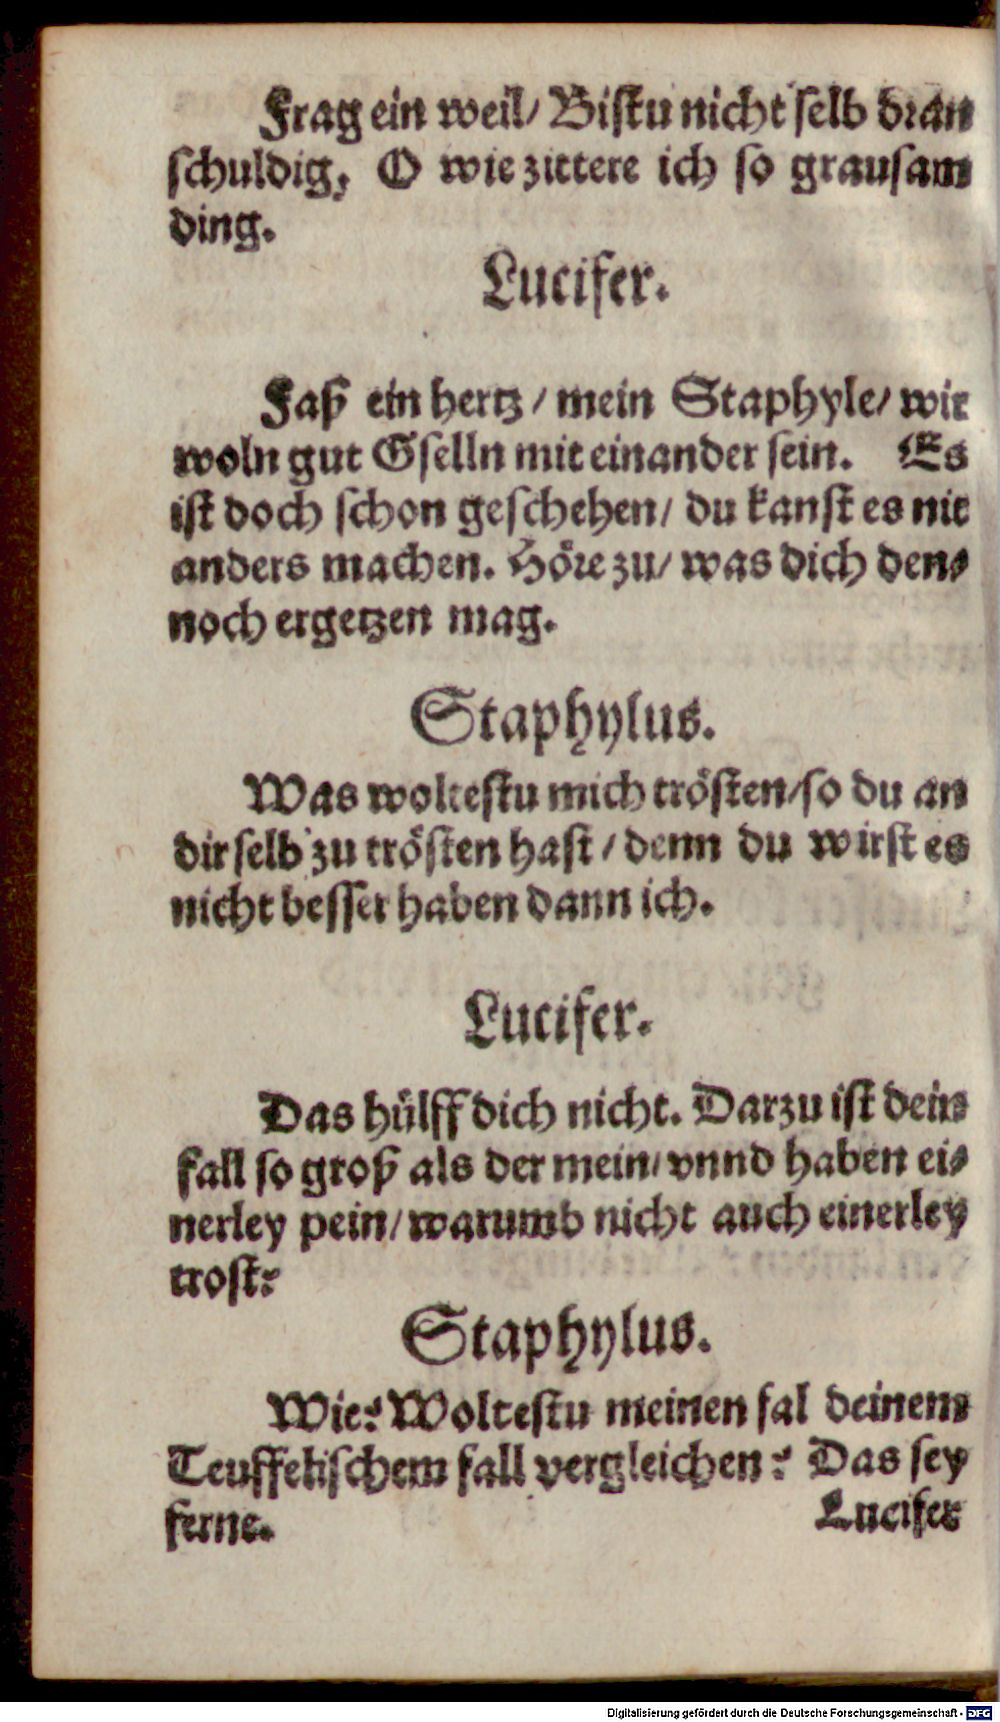 Frag ein weil/ Bistu nicht selb dran
schuldig, O wie zittere ich so grausam
ding.
Lucifer.
Faß ein hertz / mein Staphyle/ wir
woln gut Gselln mit einander sein. Es
ist doch schon geschehen/ du kanst es nit
anders machen. Höre zu/ was dich den⸗
noch ergetzen mag.
Staphylus.
Was woltestu mich trösten/so du an
dir selb zu trösten hast / denn du wirst es
nicht besser haben dann ich.
Lucifer.
Das hülff dich nicht. Darzu ist dein
fall so groß als der mein/ vnnd haben ei⸗
nerley pein/ warumb nicht auch einerley
trost?
Staphylus.
Wie? Woltestu meinen fal deinem
Teuffelischem fall vergleichen? Das sey
ferne.
Lucifer
Digitalisierung gefördert durch die Deutsche Forschungsgemeinschaft - DFG